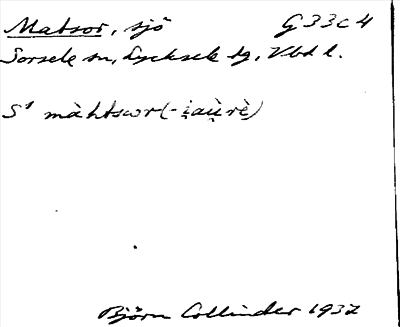 Matsor, sjö G 33 c 4
Sorsele sn, Lycksele tg, Vbd l.
S¹ màhtswr (-i̯au̯rè)
Björn Collinder 1937